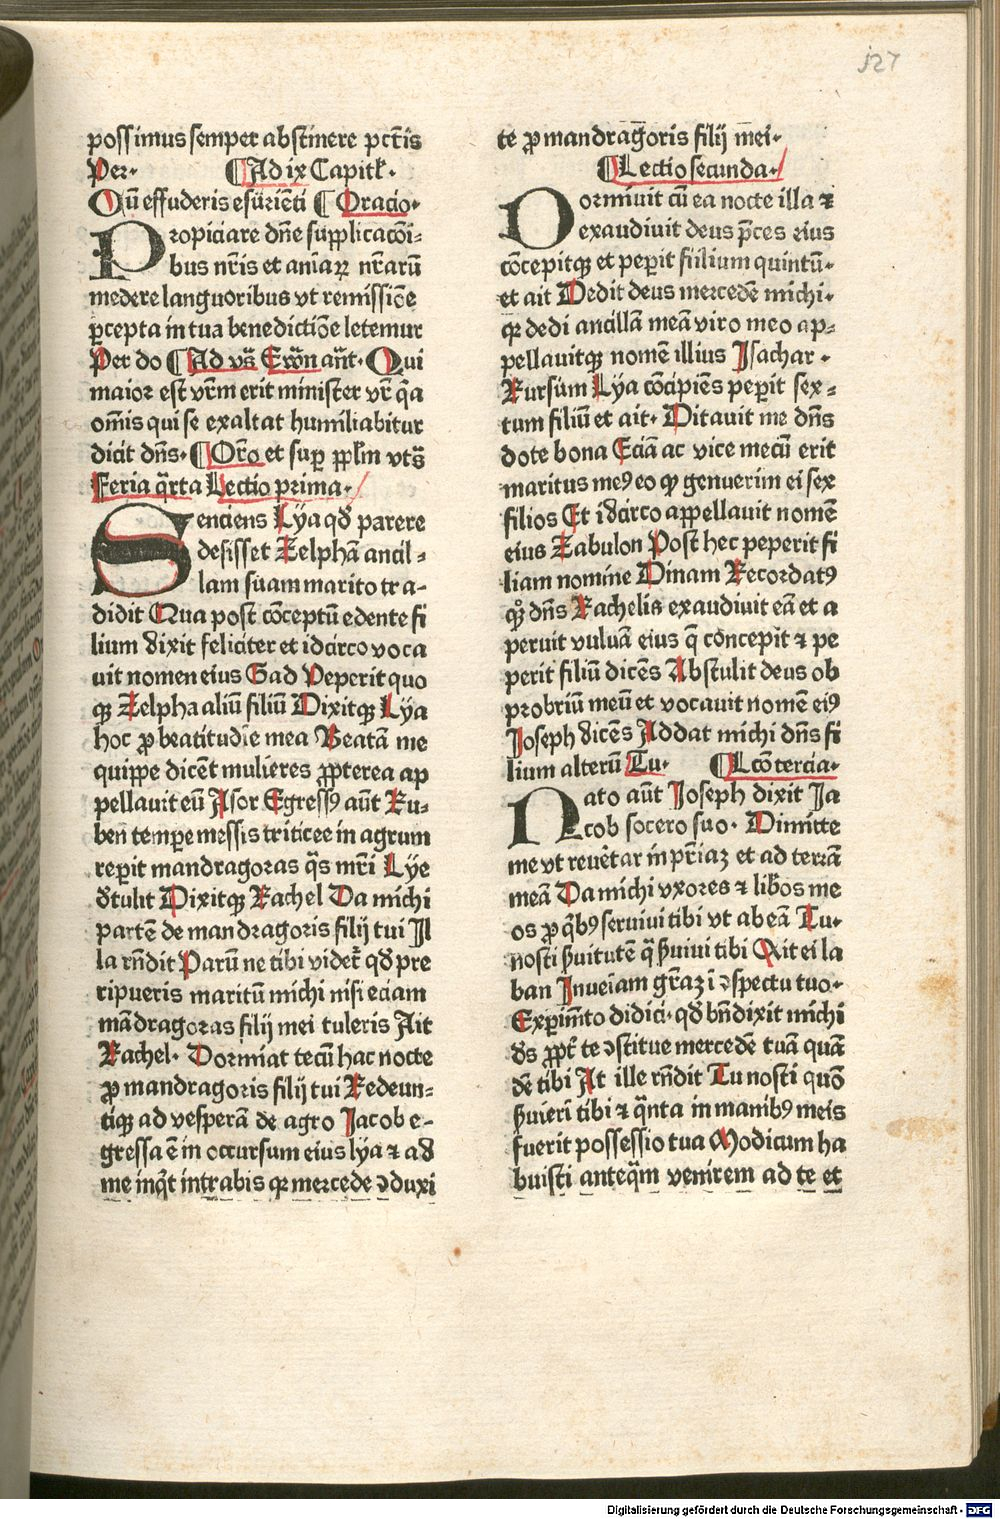 127
possimus semper abstinere pctīs
Per· ¶Ad ix Capitl̄·
Cū effuderis esuriēti ¶Oracio·
Propiciare dn̄e supplicacōi-
bus nr̄is et aniaꝝ nr̄arū
medere languoribus vt remissiōe
ꝑcepta in tua benedictiōe letemur
Per do ¶Ad vs̄ Ewn̄ an̄t· Qui
maior est vr̄m erit minister vr̄ q̄a
om̄is qui se exaltat humiliabitur
dicit dn̄s· ¶Orō et suꝑ pplm̄ vts̄
Feria q̄rta Lectio prima·
Senciens Lya qꝺ parere
desisset Zelphā ancil-
lam suam marito tra-
didit Qua post cōceptū edente fi
lium dixit feliciter et idcirco voca
uit nomen eius Gad Peperit quo
qꝫ Zelpha aliū filiū Dixitqꝫ Lya
hoc ꝓ beatitudīe mea Beatā me
quippe dicēt mulieres ꝓpterea ap
pellauit eū Asor Egressꝰ aūt Ru-
ben tempe messis triticee in agrum
reꝑit mandragoras q̄s mr̄i Lye
dtulit Dixitqꝫ Rachel Da michi
partē de mandragoris filij tui Il
la rn̄dit Parū ne tibi videt̄ qꝺ pre
ripueris maritū michi nisi eciam
mādragoras filij mei tuleris Ait
Rachel· Dormiat tecū hac nocte
ꝓ mandragoris filij tui Redeun-
tiqꝫ ad vesperā de agro Jacob e-
gressa ē in occursum eius lya ⁊ ad
me inq̄t intrabis qꝛ mercede ↄduxi
te ꝓ mandragoris filij mei·
¶Lectio secunda·
Dormiuit cū ea nocte illa ⁊
exaudiuit deus p̄ces eius
cōcepitqꝫ et peꝑit fiilium quintū·
et ait Dedit deus mercedē michi·
qꝛ dedi ancillā meā viro meo ap-
pellauitqꝫ nomē illius Isachar·
Rursum Lya cōcipiēs peꝑit sex-
tum filiū et ait· Ditauit me dn̄s
dote bona Eciā ac vice mecū erit
maritus meꝰ eo qꝙ genuerim ei sex
filios Et idcirco appellauit nomē
eius Zabulon Post hec peperit fi
liam nomine Dinam Recordatꝰ
qꝫ dn̄s Rachelis exaudiuit eā et a
peruit vuluā eius q̄ concepit ⁊ pe
perit filiū dicēs Abstulit deus ob
probriū meū et vocauit nomē eiꝰ
Joseph dicēs Addat michi dn̄s fi
lium alterū Tu· ¶Lcō tercia·
Nato aūt Joseph dixit Ja
cob socero suo· Dimitte
me vt reuētar in pr̄iaꝫ et ad terrā
meā Da michi vxores ⁊ lib̄os me
os ꝓ q̄bꝰ seruiui tibi vt ab eā Tu·
nosti ẜuitutē q̄ ẜuiui tibi Ait ei la
ban Inueiam gr̄aꝫ i ↄspectu tuo·
Exꝑimēto didici· qꝺ bn̄dixit michi
ds̄ ꝓpt̄ te ↄstitue mercedē tuā quā
dē tibi At ille rn̄dit Tu nosti quō
ẜuierī tibi ⁊ q̄nta in manibꝰ meis
fuerit possessio tua Modicum ha
buisti anteq̄m venirem ad te et
Digitalisierung gefördert durch die Deutsche Forschungsgemeinschaft - DFG